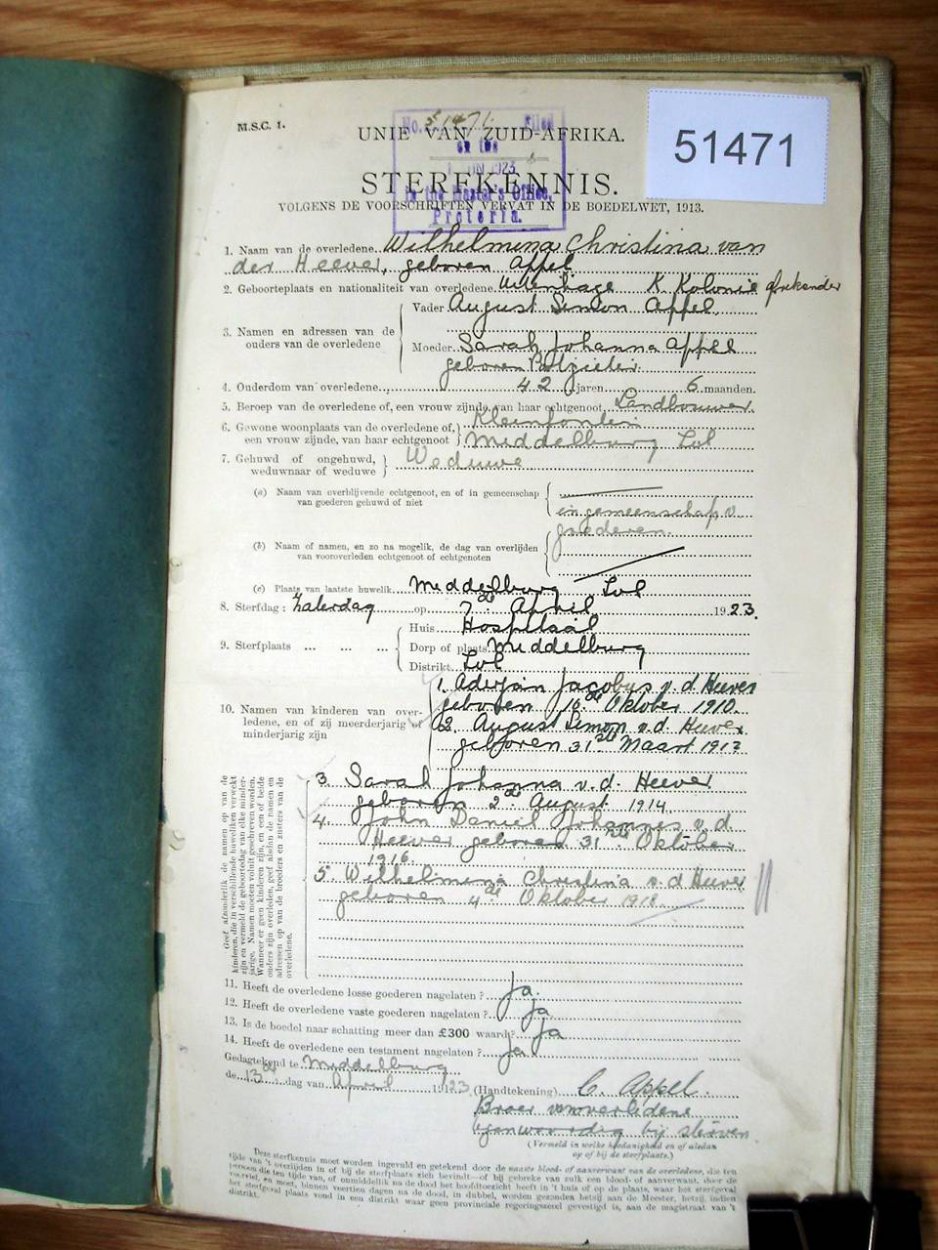 M.S.C. 1.
No. 51471. Filed
on the
1923
in the Master's Office,
Pretoria.
51471
UNIE VAN ZUID-AFRIKA.
STERFKENNIS.
VOLGENS DE VOORSCHRIFTEN VERVAT IN DE BOEDELWET, 1913.
1. Naam van de overledene Wilhelmina Christina van
der Heever, geboren Appel
2. Geboorteplaats en nationaliteit van overledene Uitenhage K. Kolonie afrikander
3. Namen en adressen van de ouders van de overledene
Vader August Simon Appel.
Moeder Sarah Johanna Appel
geboren Potgieter.
4. Ouderdom van overledene 42 jaren 6 maanden.
5. Beroep van de overledene of, een vrouw zijnde, van haar echtgenoot Landbouwer
6. Gewone woonplaats van de overledene of, een vrouw zijnde, van haar echtgenoot
Kleinfontein
Middelburg Tvl
7. Gehuwd of ongehuwd, weduwnaar of weduwe Weduwe
(a) Naam van overblijvende echtgenoot, en of in gemeenschap van goederen gehuwd of niet
in gemeenschap v.
goederen.
(b) Naam of namen, en zo na mogelik, de dag van overlijden
van vooroverleden echtgenoot of echtgenoten
(c) Plaats van laatste huwelik Middelburg Tvl
8. Sterfdag: Zaterdag op 7de April 1923.
9. Sterfplaats ... ... ...
Huis Hospitaal
Dorp of plaats Middelburg
Distrikt Tvl
10. Namen van kinderen van overledene, en of zij meerderjarig of minderjarig zijn
1. Adriaan Jacobus v. d. Heever
geboren 10de Oktober 1910.
2. August Simon v. d. Heever
geboren 31ste Maart 1912
3. Sarah Johanna v. d. Heever
geboren 2de August 1914
4. John Daniel Johannes v. d.
Heever geboren 31ste Oktober
1916.
5. Wilhelmina Christina v. d. Heever
geboren 4de Oktober 1918.
Geef afzonderlik de namen op van de
kinderen, die in verschillende huweliken verwekt
zijn en vermeld de geboortedag van elke minderjarige.
Namen moeten voluit geschreven worden.
Wanneer er geen kinderen zijn, en een of beide
ouders zijn overleden, geef alsdan de namen en
adressen op van de broeders en zusters van de
overledene.
11. Heeft de overledene losse goederen nagelaten? Ja.
12. Heeft de overledene vaste goederen nagelaten? Ja
13. Is de boedel naar schatting meer dan £300 waard? Ja
14. Heeft de overledene een testament nagelaten? Ja
Gedagtekend te Middelburg
de 13de dag van April 1923 (Handtekening) C. Appel.
Broer van overledene
tegenwoordig bij sterven.
(Vermeld in welke hoedanigheid en of aldan
op of bij de sterfplaats.)
Deze sterfkennis moet worden ingevuld en getekend door de naaste bloed- of aanverwant van de overledene, die ten
tijde van 't overlijden in of bij de sterfplaats zich bevindt—of bij gebreke van zulk een bloed- of aanverwant, door de
persoon die ten tijde van, of onmiddellik na de dood het hoofdtoezicht heeft in 't huis of op de plaats, waar het sterfgeval
voorviel, en moet, binnen veertien dagen na de dood, in dubbel, worden gezonden hetzij aan de Meester, hetzij, indien
het sterfgeval plaats vond in een distrikt waar geen provinciale regeringszetel gevestigd is, aan de magistraat van 't
distrikt.